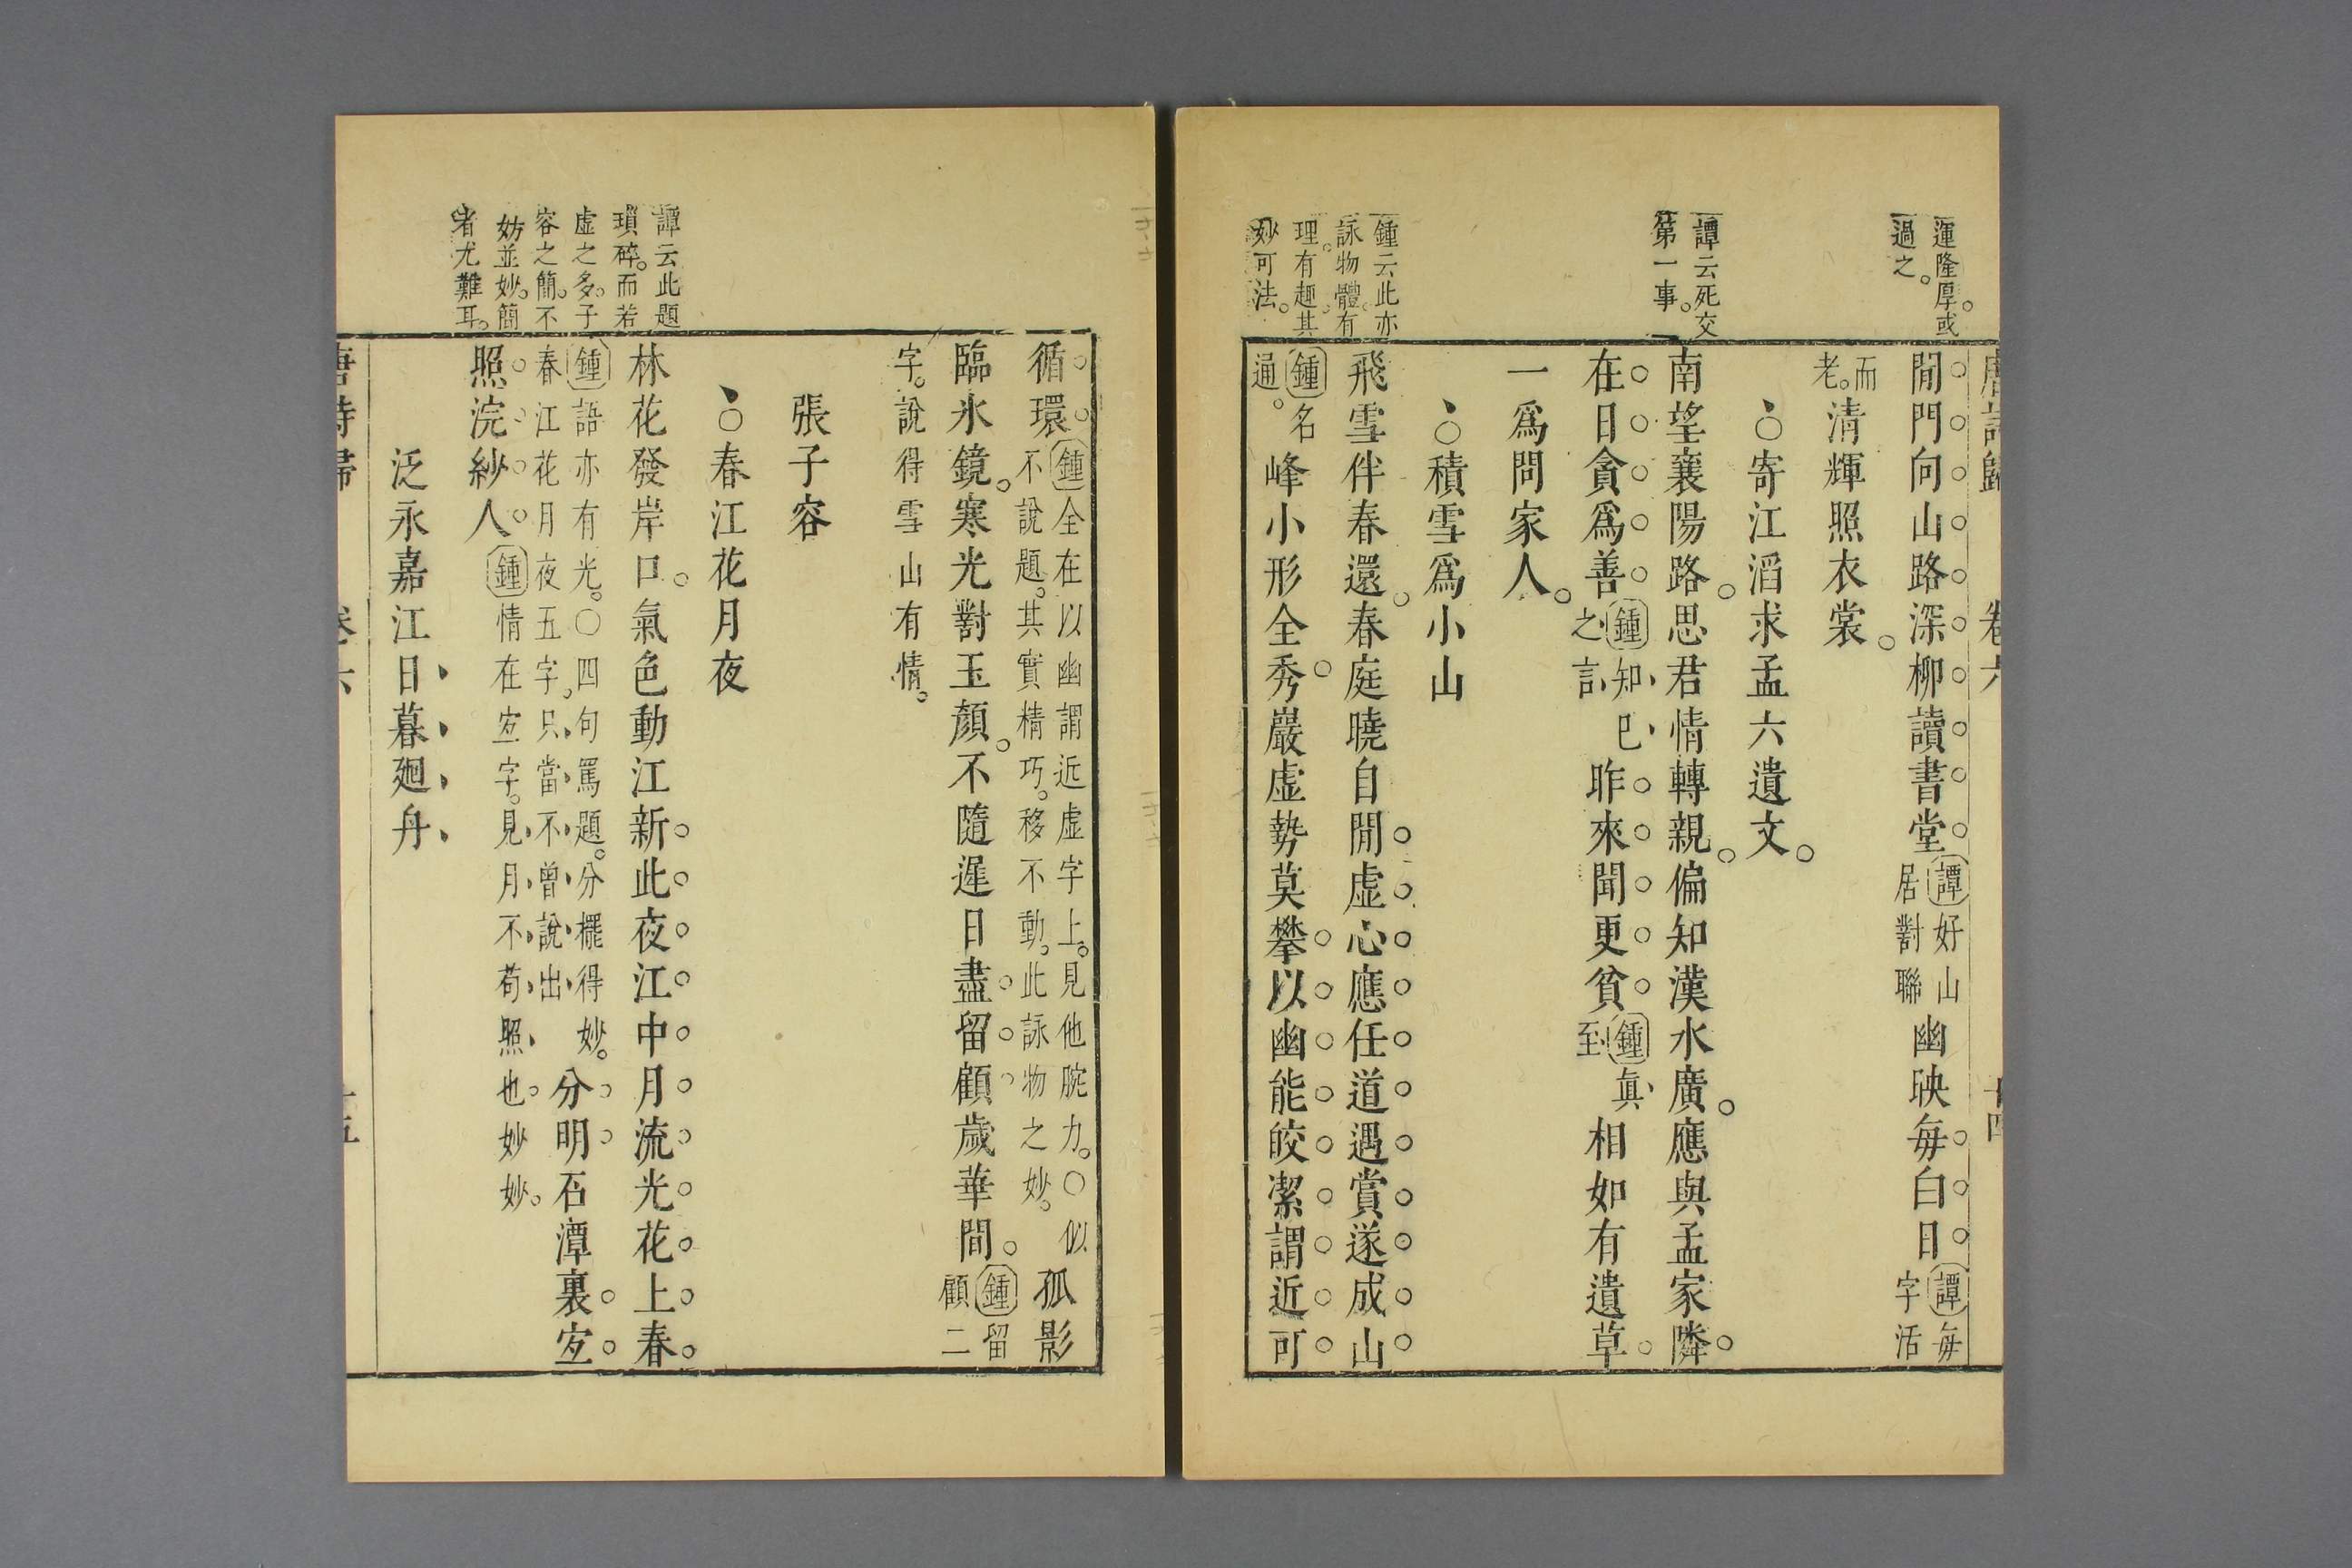 唐詩歸 卷六 十四
渾隆厚。或
過之。
閒門向山路深柳讀書堂譚好山居對聯幽映每白日譚每字活
而老。清輝照衣裳。
○寄江滔求孟六遺文。
譚云死交
第一事。
南望襄陽路。思君情轉親。偏知漢水廣。應與孟家隣。
在日貪為善鍾知己之言昨來聞更貧鍾眞至相如有遺草
一爲問家人。
○積雪爲小山
鍾云此亦
詠物體。有
理。有趣。其
妙可法。
飛雪伴春還。春庭曉自閒虛心應任道遇賞遂成山
鍾名通。峰小形全秀巖虛勢莫攀以幽能皎潔謂近可
循環。鍾全在以幽謂近虛字上。見他腕力。○似不說題。其實精巧。移不動。此詠物之妙。孤影
臨氷鏡。寒光對玉顏。不隨遲日盡留顧歲華間。鍾留顧二
字。說得雪山有情。
張子容
○春江花月夜
譚云此題
瑣碎。而若
虛之多。子
容之簡。不
妨並妙。簡
者尤難耳。
林花發岸口。氣色動江新此夜江中月流光花上春
鍾語亦有光。○四句罵題。分擺得妙。春江花月夜五字。只當不曾說出分明石潭裏宐
照浣紗人鍾情在宐字。見月不苟照也。妙妙。
泛永嘉江日暮廻舟
唐詩歸 卷六 十五